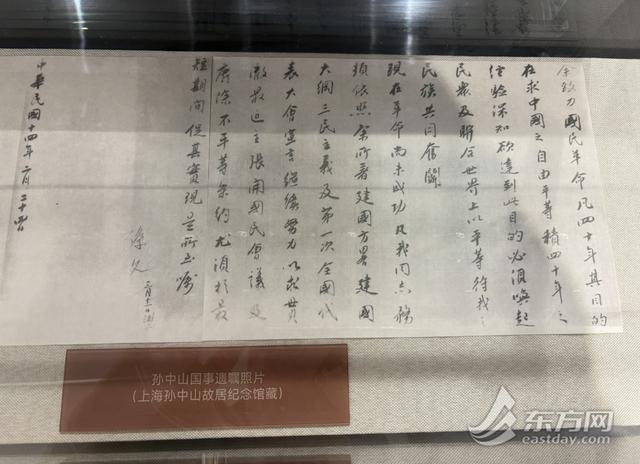 余致力國民革命凡四十年其目的
在求中國之自由平等積四十年之
經驗深知欲達到此目的必須喚起
民眾及聯合世界上以平等待我之
民族共同奮鬬
現在革命尚未成功凡我同志務
須依照余所著建國方畧建國
大綱三民主義及第一次全國代
表大會宣言繼續努力以求貫
澈最近主張開國民會議及
廢除不平等条約尤須於最
短期間促其實現是所至囑
孫文
三月十一日補
中華民國十四年二月二十四日
孙中山国事遗嘱照片
(上海孙中山故居纪念馆藏)
东方网
eastday.com